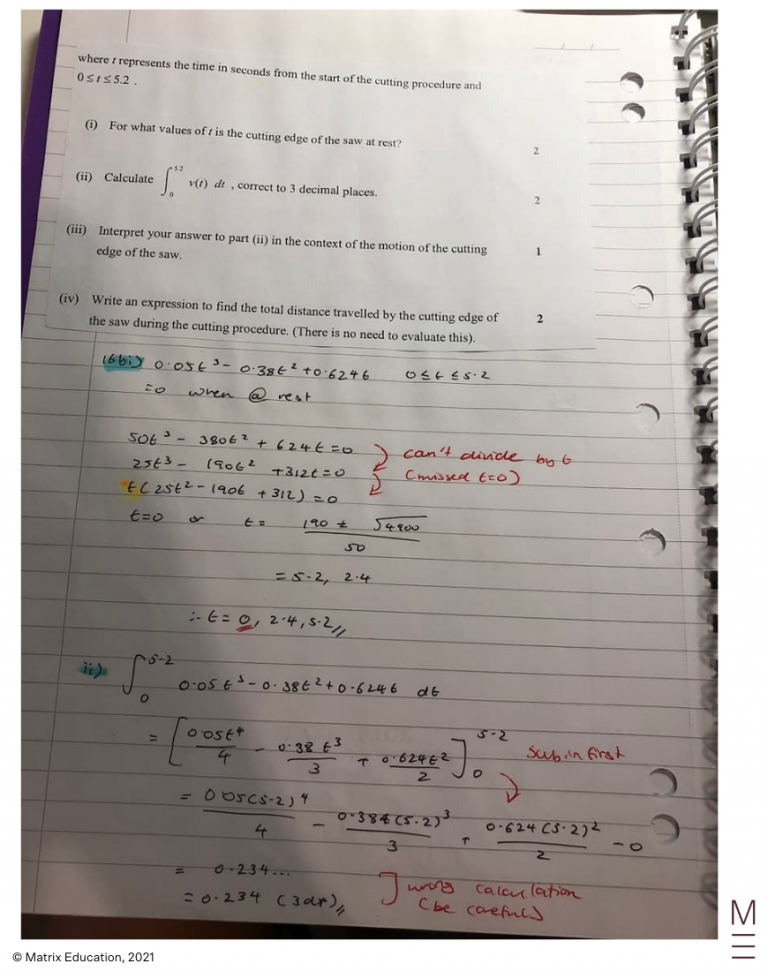 where t represents the time in seconds from the start of the cutting procedure and
0 ≤ t ≤ 5.2 .
(i) For what values of t is the cutting edge of the saw at rest? 2
(ii) Calculate ∫₀^5.2 v(t) dt , correct to 3 decimal places. 2
(iii) Interpret your answer to part (ii) in the context of the motion of the cutting 1
edge of the saw.
(iv) Write an expression to find the total distance travelled by the cutting edge of 2
the saw during the cutting procedure. (There is no need to evaluate this).
16bi) 0.05t³ - 0.38t² + 0.624t 0 ≤ t ≤ 5.2
=0 when @ rest
50t³ - 380t² + 624t = 0 can't divide by t
25t³ - 190t² + 312t = 0 (missed t=0)
t(25t² - 190t + 312) = 0
t=0 or t = (190 ± √4900)/50
= 5.2, 2.4
∴ t = 0, 2.4, 5.2 //
ii) ∫₀^5.2 0.05t³ - 0.38t² + 0.624t dt
= [0.05t⁴/4 - 0.38t³/3 + 0.624t²/2]₀^5.2 sub in first
= 0.05(5.2)⁴/4 - 0.38t(5.2)³/3 + 0.624(5.2)²/2 - 0
= 0.234... wrong calculation
= 0.234 (3dp) // (be careful)
© Matrix Education, 2021
M